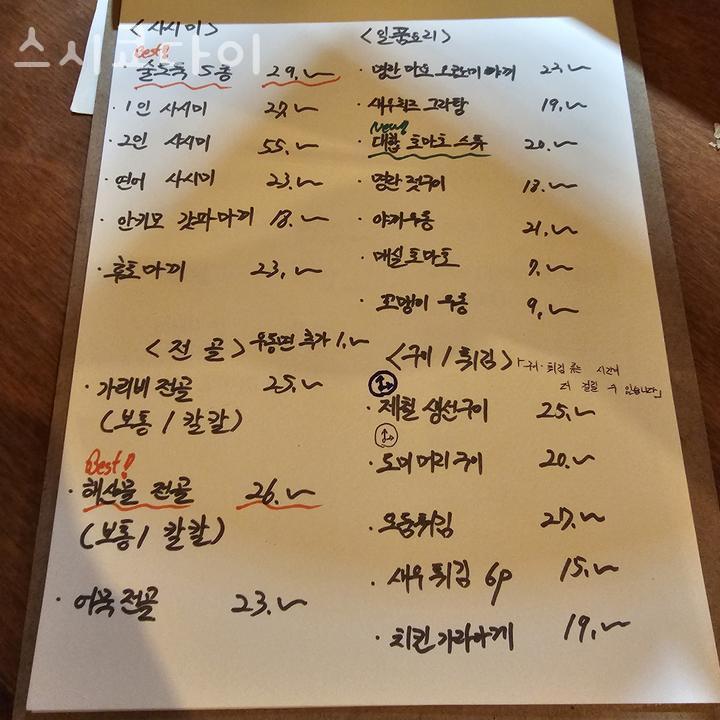 스시코다이
<사시미>
Best!
· 술도둑 5종 29.~
· 1인 사시미 27.~
· 2인 사시미 55.~
· 연어 사시미 23.~
· 안키모 갓파마끼 18.~
· 후토마끼 23.~
<전 골> 우동면 추가 1.~
· 가리비 전골 25.~
(보통 / 칼칼)
Best!
· 해산물 전골 26.~
(보통 / 칼칼)
· 어묵 전골 23.~
<일품요리>
· 명란 마요 오꼬노미야끼 23.~
· 새우치즈 그라탕 19.~
New!
· 대합 토마토 스튜 20.~
· 명란 젓구이 18.~
· 야끼우동 21.~
· 매실토마토 7.~
· 꼬맹이 우동 9.~
<구이 / 튀김> 「구이·튀김 류는 시간이
더 걸릴 수 있습니다」
· 제철 생선구이 25.~
· 도미 머리 구이 20.~
· 모둠튀김 27.~
· 새우튀김 6p 15.~
· 치킨 가라아게 19.~